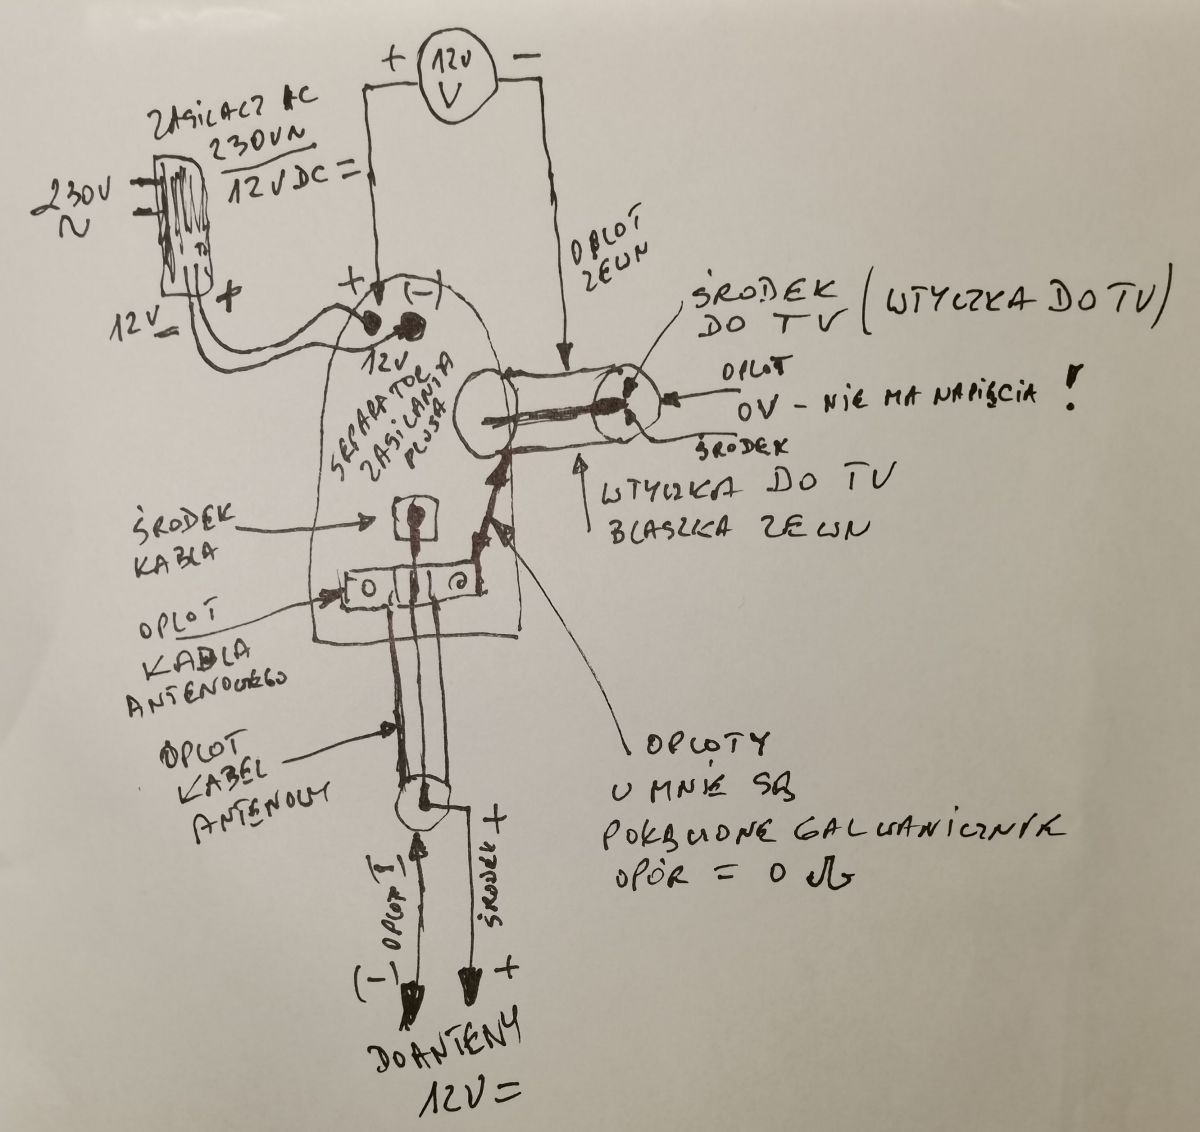 + 12V -
V
ZASILACZ AC
230VN
12V DC =
230V
~
+
12V =
+ (-)
12V
SEPARATOR
ZASILANIA
PLUSA
OPLOT
ZEWN
ŚRODEK (WTYCZKA DO TV)
DO TV
OPLOT
0V - NIE MA NAPIĘCIA !
ŚRODEK
WTYCZKA DO TV
BLASZKA ZEWN
ŚRODEK
KABLA
OPLOT
KABLA
ANTENOWEGO
OPLOT
KABEL
ANTENOWY
OPLOTY
U MNIE SĄ
POŁĄCZONE GALWANICZNIE
OPÓR = 0 Ω
OPLOT
ŚRODEK +
(-) +
DO ANTENY
12V =